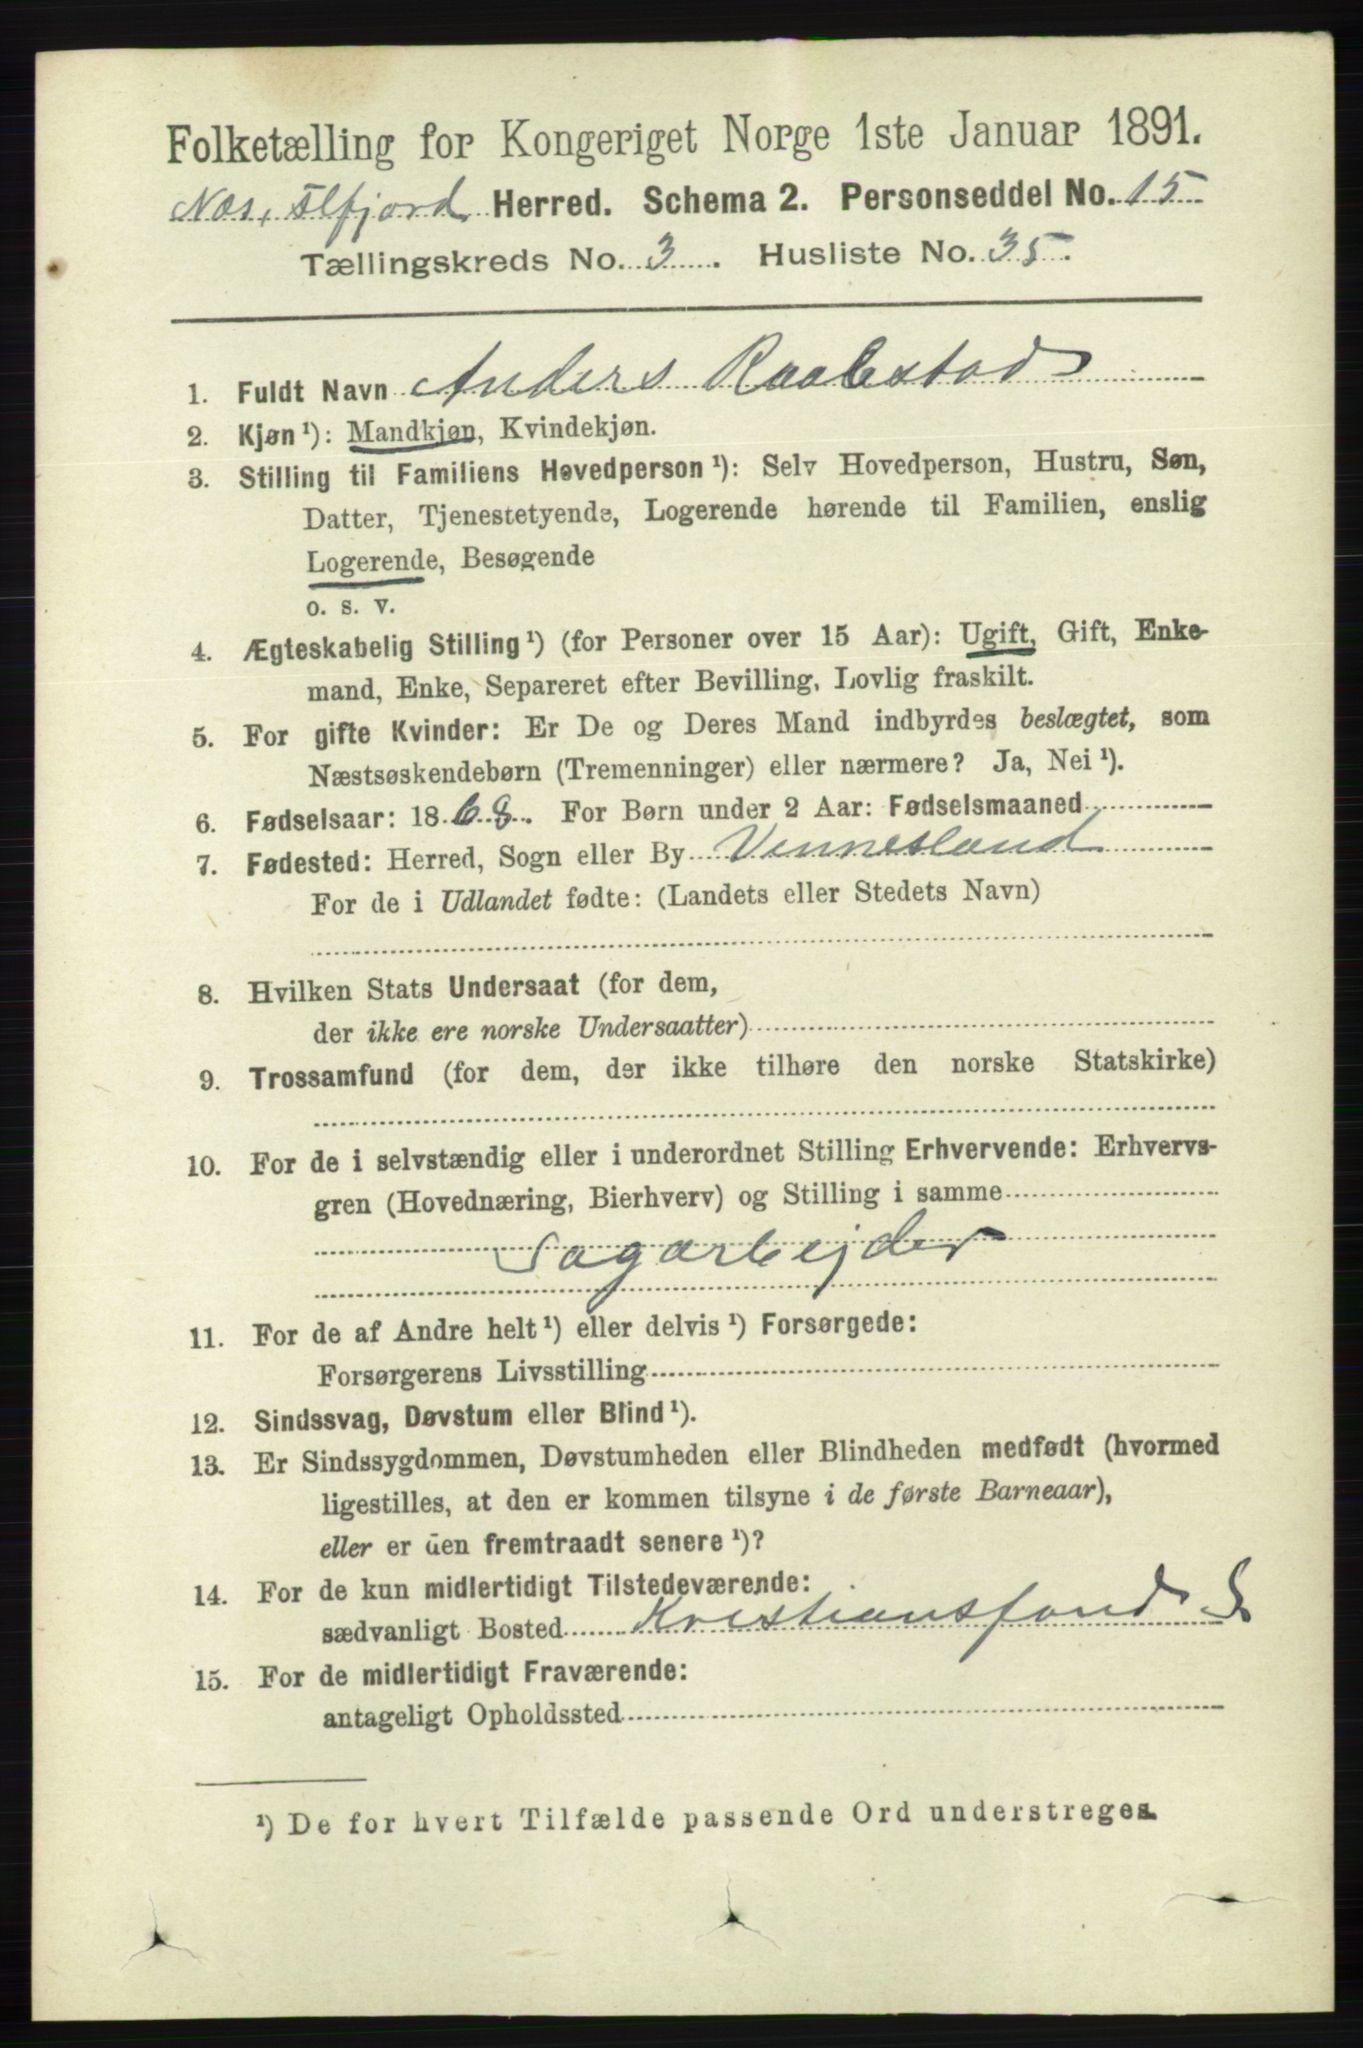 Folketælling for Kongeriget Norge 1ste Januar 1891.
Næs, Herred. Schema 2. Personseddel No. 15
Tællingskreds No. 3. Husliste No. 35.
1. Fuldt Navn Anders Raabstad
2. Kjøn¹): Mandkjøn, Kvindekjøn.
3. Stilling til Familiens Hovedperson¹): Selv Hovedperson, Hustru, Søn,
Datter, Tjenestetyende, Logerende hørende til Familien, enslig
Logerende, Besøgende
o. s. v.
4. Ægteskabelig Stilling¹) (for Personer over 15 Aar): Ugift, Gift, Enke-
mand, Enke, Separeret efter Bevilling, Lovlig fraskilt.
5. For gifte Kvinder: Er De og Deres Mand indbyrdes beslægtet, som
Næstsøskendebørn (Tremenninger) eller nærmere? Ja, Nei¹).
6. Fødselsaar: 1868. For Børn under 2 Aar: Fødselsmaaned
7. Fødested: Herred, Sogn eller By Vennesland
For de i Udlandet fødte: (Landets eller Stedets Navn)
8. Hvilken Stats Undersaat (for dem,
der ikke ere norske Undersaatter)
9. Trossamfund (for dem, der ikke tilhøre den norske Statskirke)
10. For de i selvstændig eller i underordnet Stilling Erhvervende: Erhvervs-
gren (Hovednæring, Bierhverv) og Stilling i samme
Sagarbejder
11. For de af Andre helt¹) eller delvis¹) Forsørgede:
Forsørgerens Livsstilling
12. Sindssvag, Døvstum eller Blind¹).
13. Er Sindssygdommen, Døvstumheden eller Blindheden medfødt (hvormed
ligestilles, at den er kommen tilsyne i de første Barneaar),
eller er den fremtraadt senere¹)?
14. For de kun midlertidigt Tilstedeværende:
sædvanligt Bosted Kristiansand S
15. For de midlertidigt Fraværende:
antageligt Opholdssted
¹) De for hvert Tilfælde passende Ord understreges.